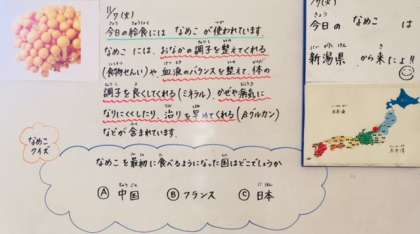 11/7(火)
今日の給食には なめこ が使われています。
なめこ には、おなかの調子を整えてくれる
(食物せんい)や 血液のバランスを整えて、体の
調子を良くしてくれる(ミネラル)、かぜや病気に
なりにくくしたり、治りを早めてくれる(βグルカン)
などが 含まれています。
なめこ
クイズ
なめこを最初に食べるようになった国はどこでしょうか
Ⓐ 中国 Ⓑ フランス Ⓒ 日本
11/7(火)
今日の なめこ は
新潟県 から来たよ!!